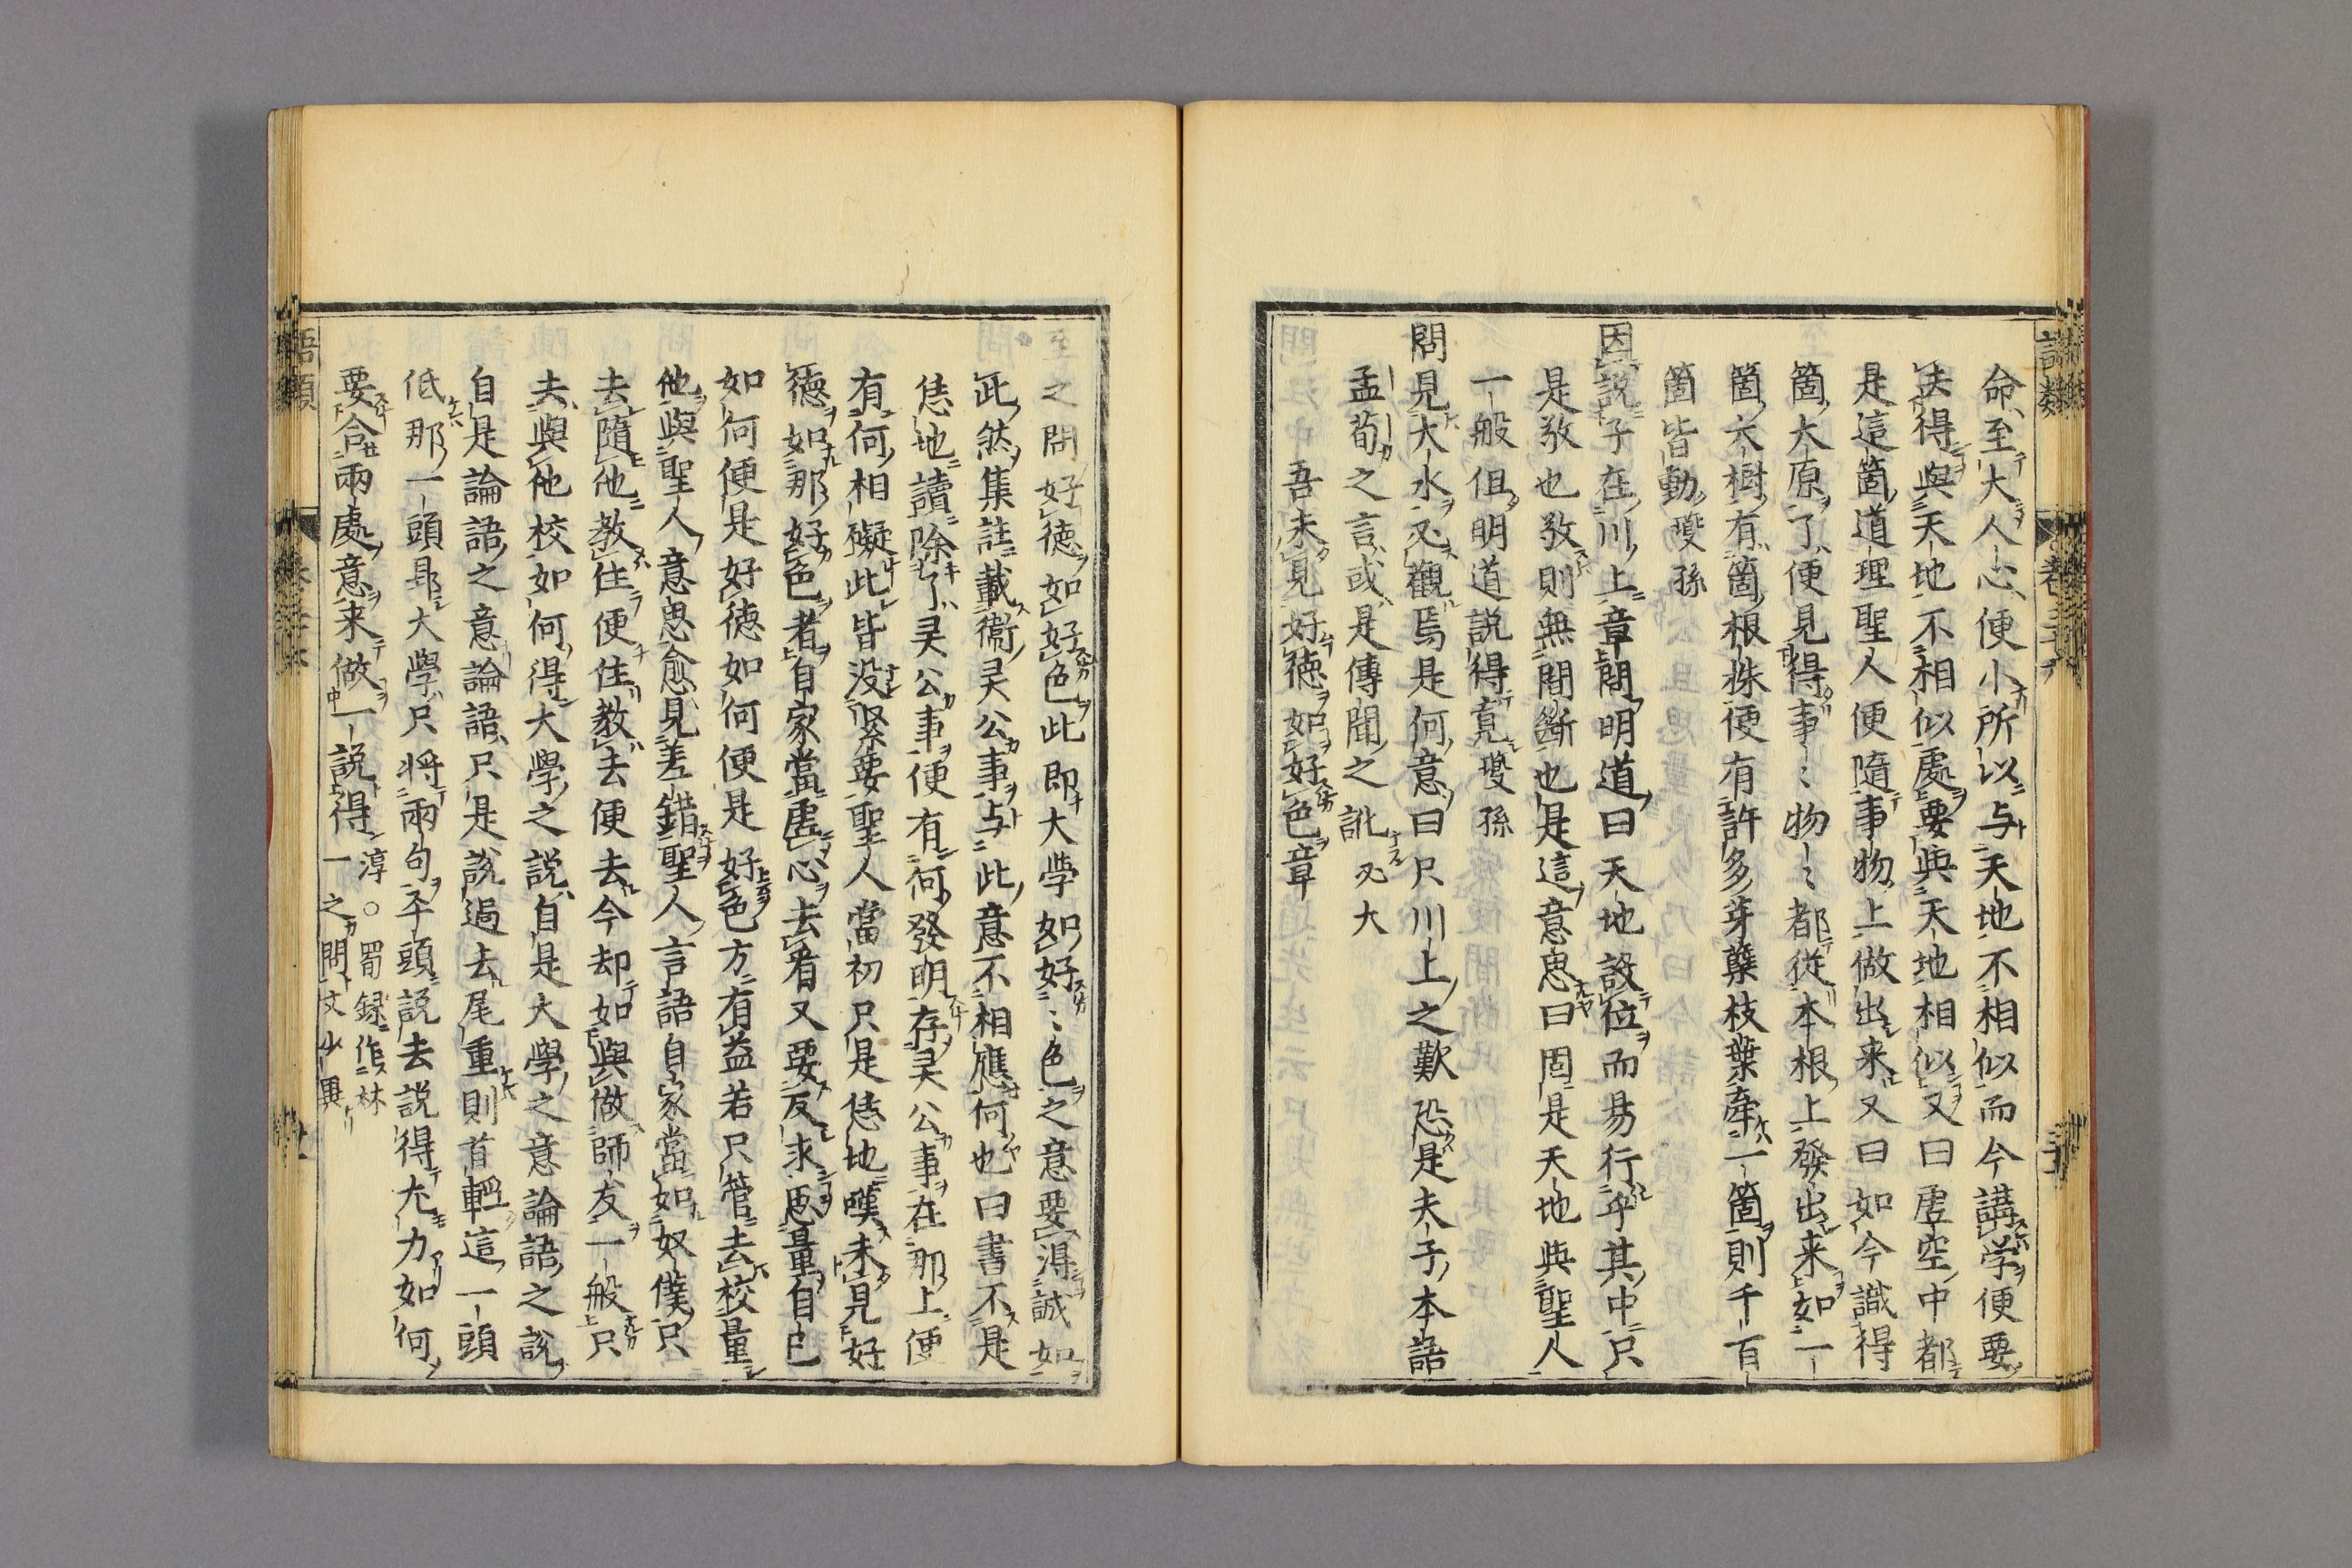 命至大人心便小所以与天地不相似而今講学便要
去得與天地不相似處要與天地相似又曰虚空中都
是這箇道理聖人便隨事物上做出来又曰如今識得
箇大原了便見得事〻物〻都從本根上發出来如一
箇大樹有箇根株便有許多芽糵枝葉牽一箇則千百
箇皆動夔孫
因説子在川上章問明道曰天地設位而易行乎其中只
是敬也敬則無間斷也是這意思曰固是天地與聖人
一般但明道説得寛夔孫
問見大水必觀焉是何意曰只川上之歎恐是夫子本語
孟荀之言或是傳聞之訛必大
吾未見好德如好色章
至之問好德如好色此即大学如好〻色之意要得誠如
此然集註載衞灵公事与此意不相應何也曰書不是
恁地讀除了灵公事便有何發明存灵公事在那上便
有何相礙此皆没緊要聖人當初只是恁地嘆未見好
德如那好色者自家當虚心去看又要反求思量自己
如何便是好德如何便是好色方有益若只管去校量
他與聖人意思愈見差錯聖人言語自家當如奴僕只
去隨他教住便住教去便去今却如與做師友一般只
去與他校如何得大學之説自是大學之意論語之説
自是論語之意論語只是説過去尾重則首輕這一頭
低那一頭昂大學只将兩句平頭説去説得尤力如何
要合兩處意来做一説得淳○蜀録作林
一之問文少異